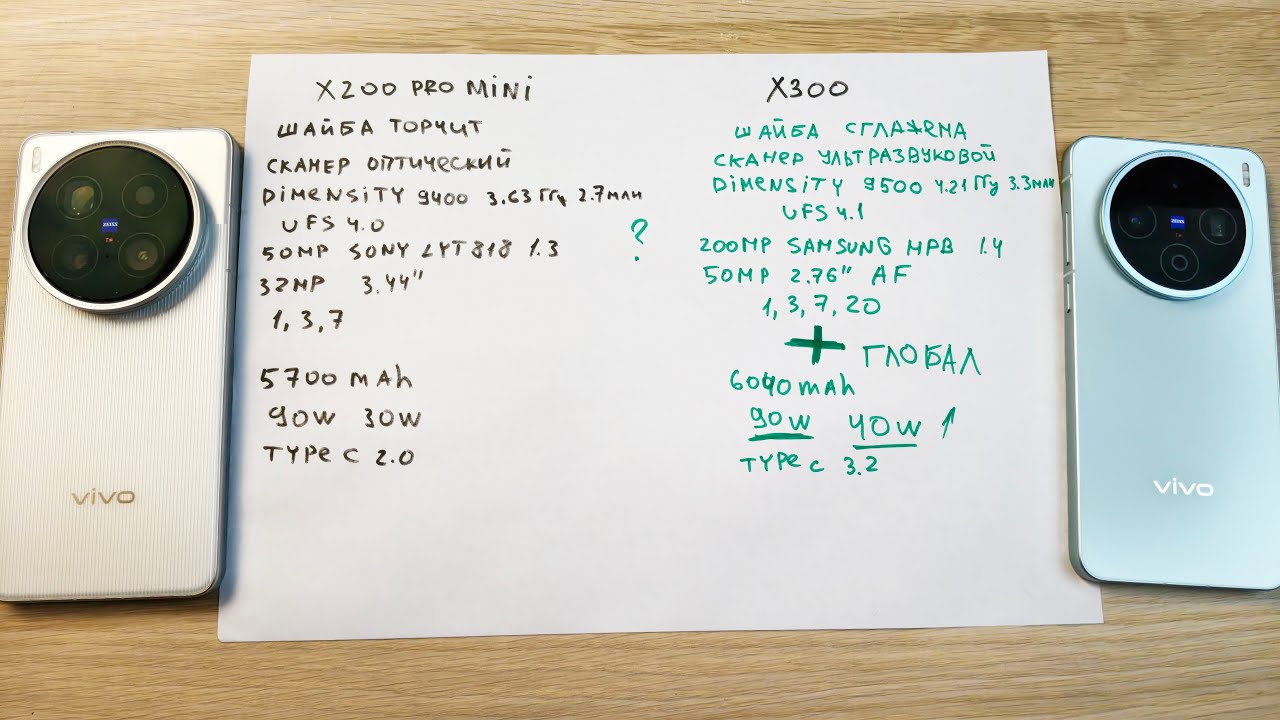 X200 PRO MINI
ШАЙБА ТОРЧИТ
СКАНЕР ОПТИЧЕСКИЙ
DIMENSITY 9400 3.63 ГГц 2.7 МЛН
UFS 4.0
50MP SONY LYT818 1.3
32MP 3.44"
1, 3, 7
5700 mAh
90W 30W
TYPE C 2.0
?
X300
ШАЙБА СГЛАЖЕНА
СКАНЕР УЛЬТРАЗВУКОВОЙ
DIMENSITY 9500 4.21 ГГц 3.3 МЛН
UFS 4.1
200MP SAMSUNG HPB 1.4
50MP 2.76" AF
1, 3, 7, 20
+ ГЛОБАЛ
6040 mAh
90W 40W ↑
TYPE C 3.2
ZEISS
vivo
ZEISS
vivo